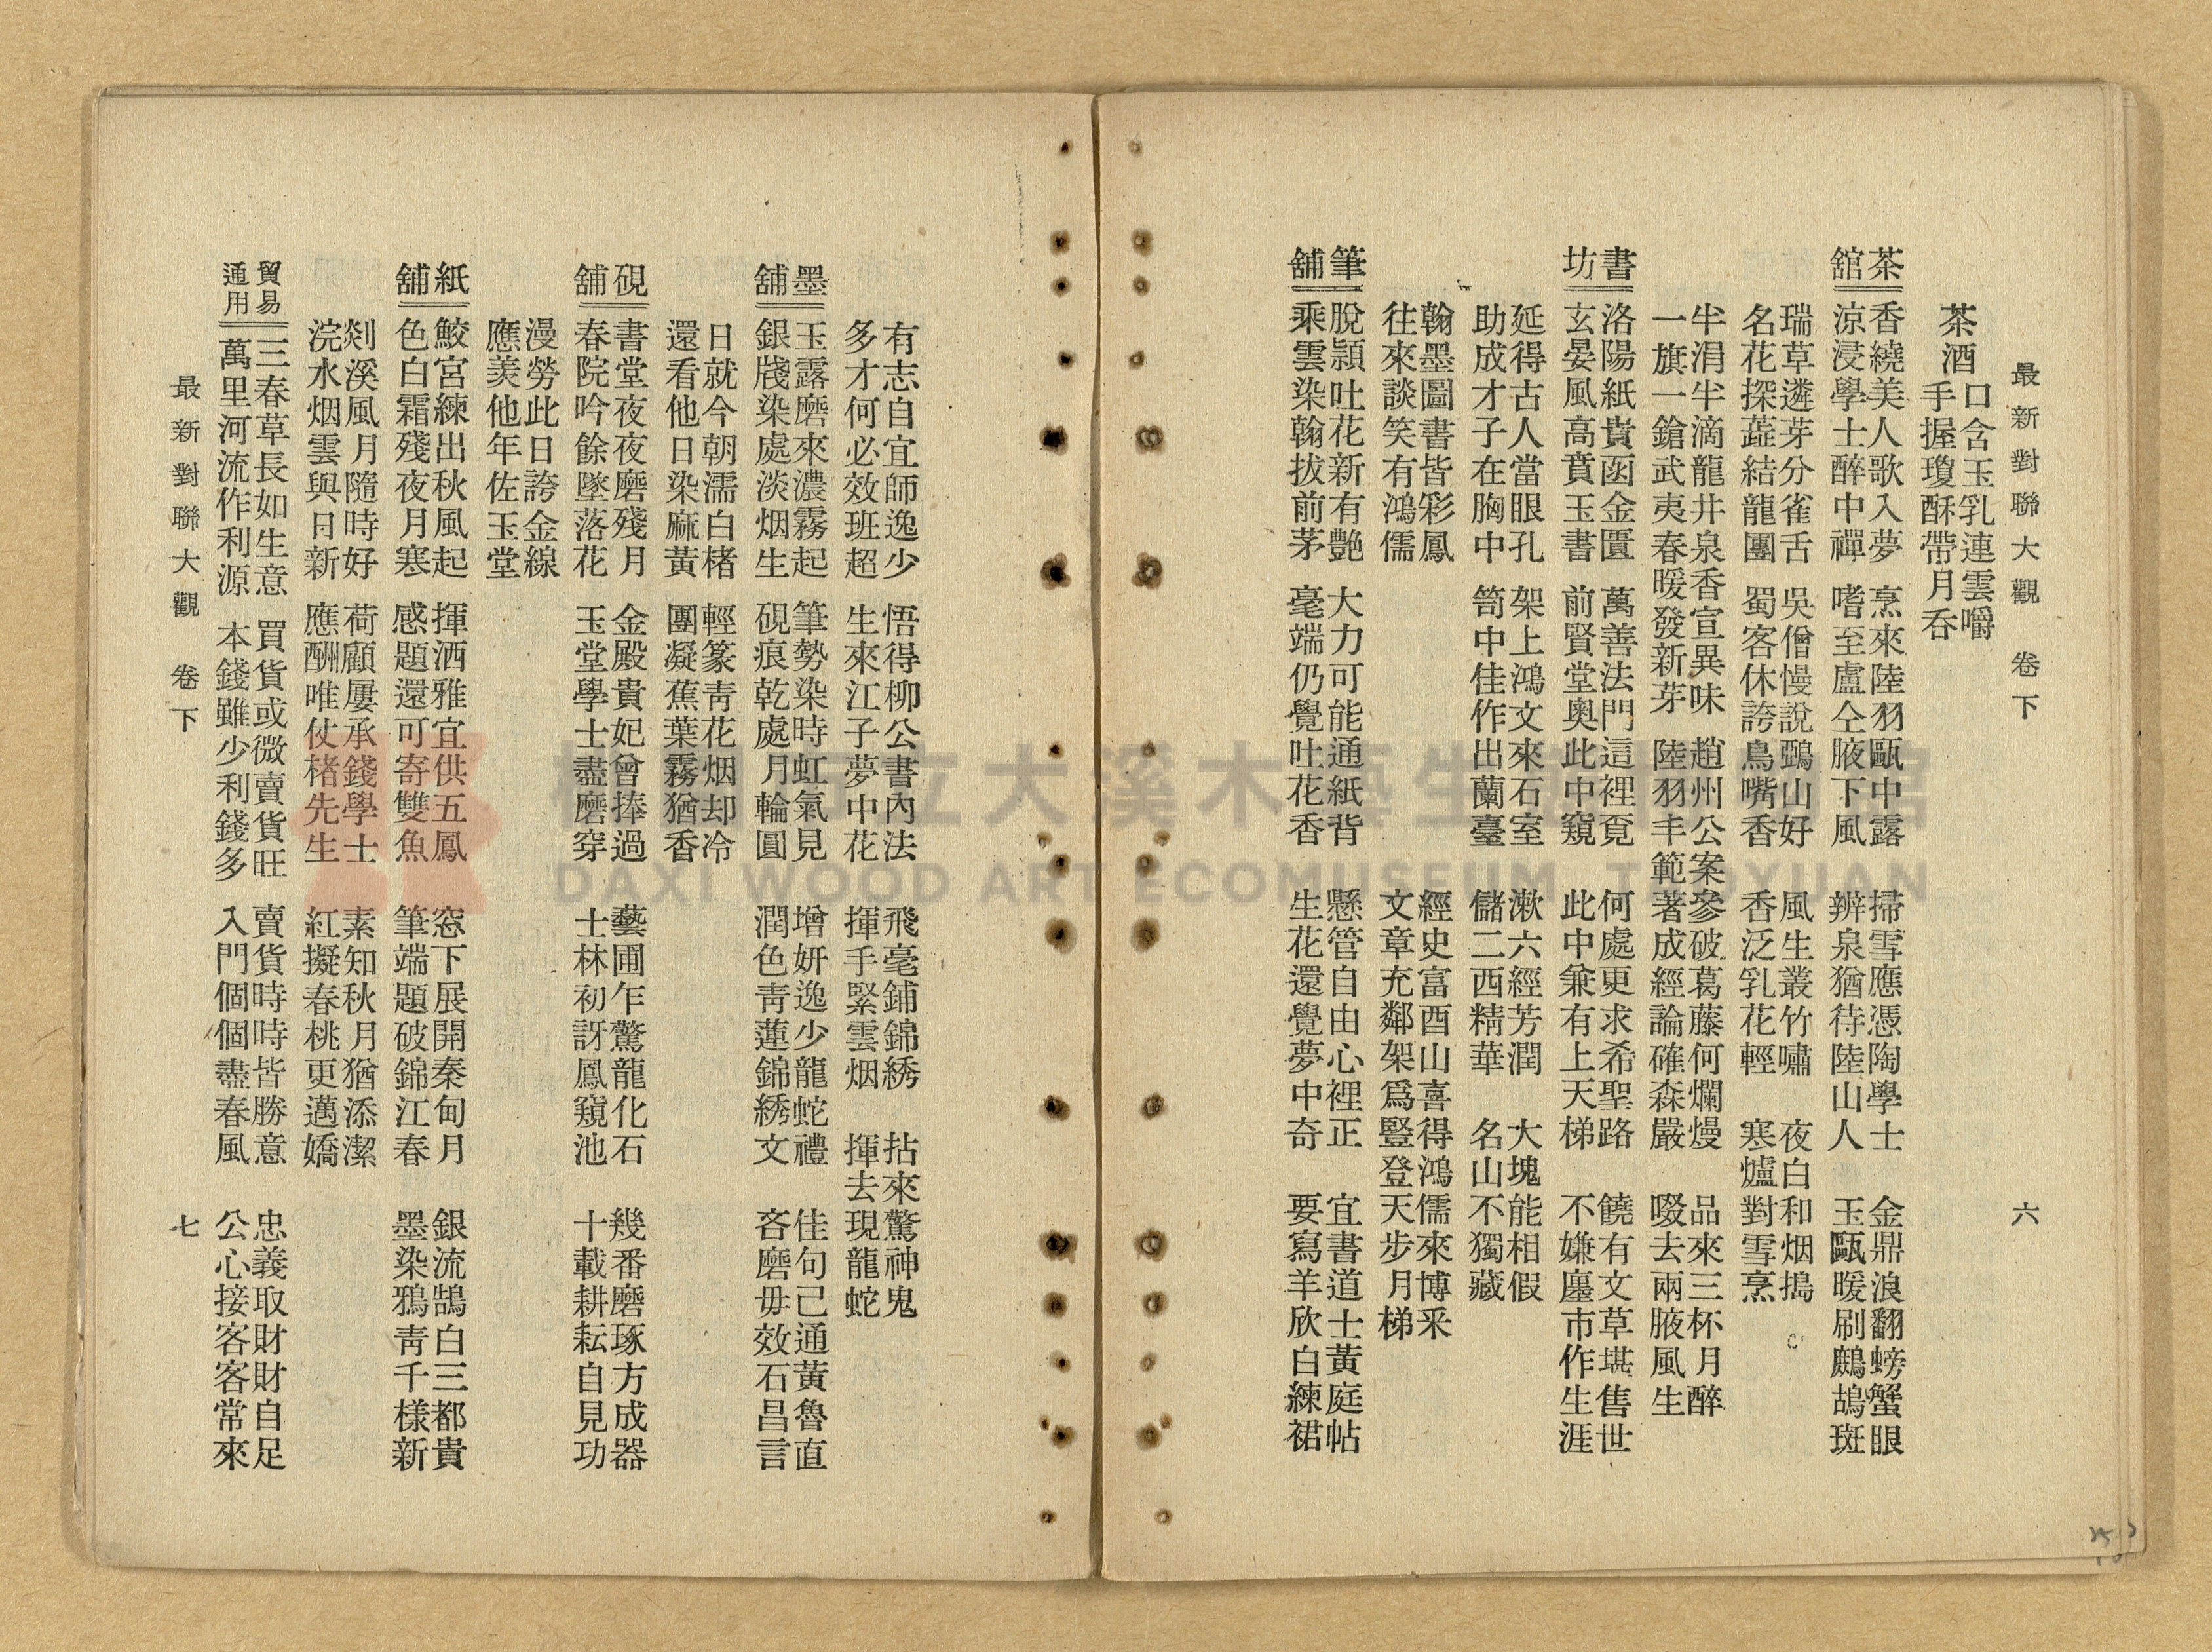 最新對聯大觀 卷下 六
茶酒
口含玉乳連雲嚼
手握瓊酥帶月吞
茶館
香繞美人歌入夢 烹來陸羽甌中露 掃雪應憑陶學士 金鼎浪翻螃蟹眼
涼浸學士醉中禪 嗜至盧仝腋下風 辨泉猶待陸山人 玉甌暖刷鷓鴣斑
瑞草遴芽分雀舌 吳僧慢說鵶山好 風生叢竹嘯 夜白和烟搗
名花探蕋結龍團 蜀客休誇鳥嘴香 香泛乳花輕 寒爐對雪烹
半涓半滴龍井泉香宣異味 趙州公案參破葛藤何爛熳 品來三杯月醉
一旗一鎗武夷春暖發新芽 陸羽丰範著成經論確森嚴 啜去兩腋風生
書坊
洛陽紙貴函金匱 萬善法門這裡覔 何處更求希聖路 饒有文草堪售世
玄晏風高賁玉書 前賢堂奧此中窺 此中兼有上天梯 不嫌廛市作生涯
延得古人當眼孔 架上鴻文來石室 漱六經芳潤 大塊能相假
助成才子在胸中 笥中佳作出蘭臺 儲二酉精華 名山不獨藏
翰墨圖書皆彩鳳 經史富酉山喜得鴻儒來博采
往來談笑有鴻儒 文章充鄰架爲豎登天步月梯
筆舖
脫頴吐花新有艷 大力可能通紙背 懸管自由心裡正 宜書道士黃庭帖
乘雲染翰拔前茅 毫端仍覺吐花香 生花還覺夢中奇 要寫羊欣白練裙
有志自宜師逸少 悟得柳公書內法 飛毫鋪錦綉 拈來驚神鬼
多才何必效班超 生來江子夢中花 揮手緊雲烟 揮去現龍蛇
墨舖
玉露磨來濃霧起 筆勢染時虹氣見 增妍逸少龍蛇禮 佳句己通黃魯直
銀牋染處淡烟生 硯痕乾處月輪圓 潤色靑蓮錦綉文 吝磨毋效石昌言
日就今朝濡白楮 輕篆靑花烟却冷
還看他日染麻黃 團凝蕉葉霧猶香
硯舖
書堂夜夜磨殘月 金殿貴妃曾捧過 藝圃乍驚龍化石 幾番磨琢方成器
春院吟餘墜落花 玉堂學士盡磨穿 士林初訝鳳窺池 十載耕耘自見功
漫勞此日誇金線
應羨他年佐玉堂
紙舖
鮫宮練出秋風起 揮洒雅宜供五鳳 窓下展開秦甸月 銀流鵠白三都貴
色白霜殘夜月寒 感題還可寄雙魚 筆端題破錦江春 墨染鴉靑千樣新
剡溪風月隨時好 荷顧屢承錢學士 素知秋月猶添潔
浣水烟雲與日新 應酬唯仗楮先生 紅擬春桃更邁嬌
貿易通用
三春草長如生意 買貨或微賣貨旺 賣貨時時皆勝意 忠義取財財自足
萬里河流作利源 本錢雖少利錢多 入門個個盡春風 公心接客客常來
最新對聯大觀 卷下 七
桃園市立大溪木藝生態博物館
DAXI WOOD ART ECOMUSEUM, TAOYUAN